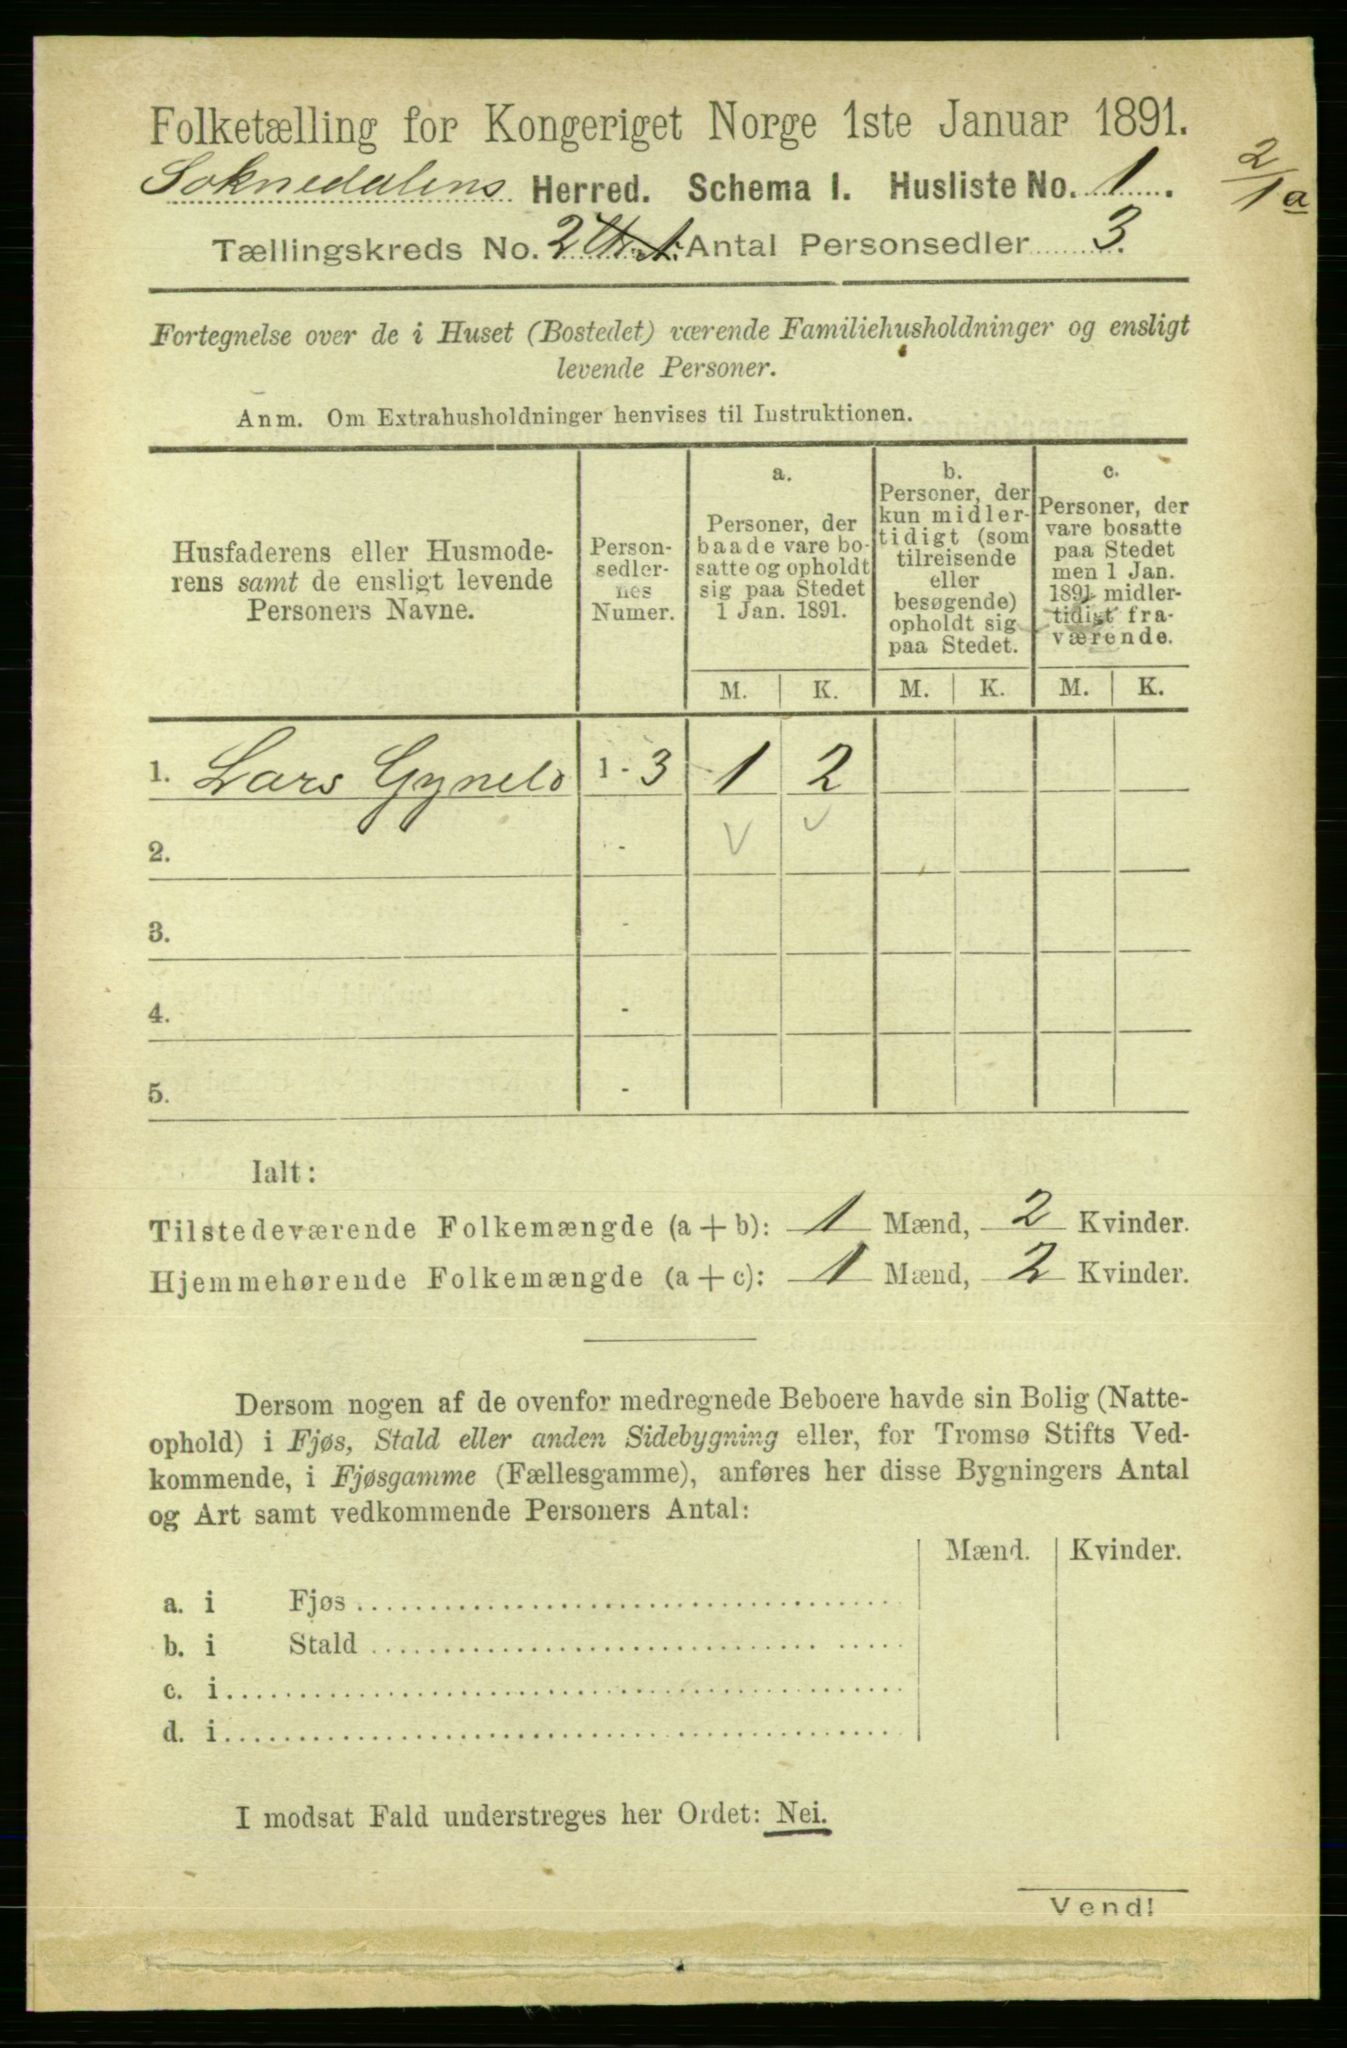 Folketælling for Kongeriget Norge 1ste Januar 1891.
Soknedalens Herred. Schema I. Husliste No. 1.
2/1a
Tællingskreds No. 2 Antal Personsedler 3.
Fortegnelse over de i Huset (Bostedet) værende Familiehusholdninger og ensligt
levende Personer.
Anm. Om Extrahusholdninger henvises til Instruktionen.
Husfaderens eller Husmode-
rens samt de ensligt levende
Personers Navne.
Person-
sedler-
nes
Numer.
a.
Personer, der
baade vare bo-
satte og opholdt
sig paa Stedet
1 Jan. 1891.
b.
Personer, der
kun midler-
tidigt (som
tilreisende
eller
besøgende)
opholdt sig
paa Stedet.
c.
Personer, der
vare bosatte
paa Stedet
men 1 Jan.
1891 midler-
tidigt fra-
værende.
M. K. M. K. M. K.
1. Lars 1 - 3 1 2
2. -
3. -
4. -
5. -
Ialt:
Tilstedeværende Folkemængde (a + b): 1 Mænd, 2 Kvinder.
Hjemmehørende Folkemængde (a + c): 1 Mænd, 2 Kvinder.
Dersom nogen af de ovenfor medregnede Beboere havde sin Bolig (Natte-
ophold) i Fjøs, Stald eller anden Sidebygning eller, for Tromsø Stifts Ved-
kommende, i Fjøsgamme (Fællesgamme), anføres her disse Bygningers Antal
og Art samt vedkommende Personers Antal:
Mænd. Kvinder.
a. i Fjøs
b. i Stald
c. i
d. i
I modsat Fald understreges her Ordet: Nei.
Vend!